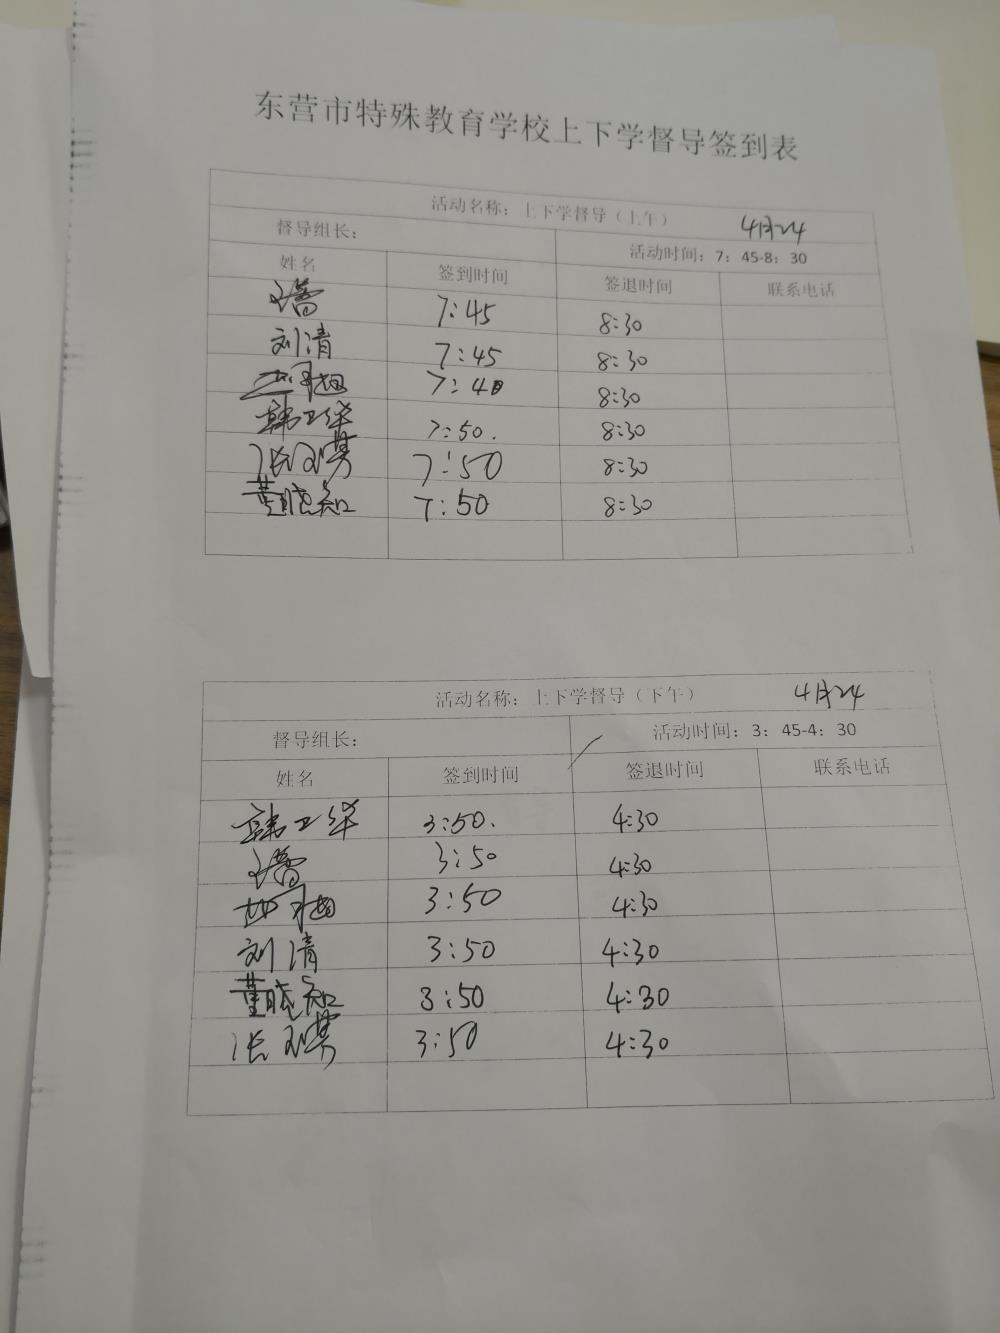 东营市特殊教育学校上下学督导签到表
活动名称：上下学督导（上午） 4月24
督导组长： 活动时间：7：45-8：30
姓名 签到时间 签退时间 联系电话
7:45 8:30
刘清 7:45 8:30
7:40 8:30
韩卫华 7:50. 8:30
张 7:50 8:30
董晓知 7:50 8:30
活动名称：上下学督导（下午） 4月24
督导组长： 活动时间：3：45-4：30
姓名 签到时间 签退时间 联系电话
韩卫华 3:50. 4:30
3:50 4:30
3:50 4:30
刘清 3:50 4:30
董晓知 3:50 4:30
张 3:50 4:30